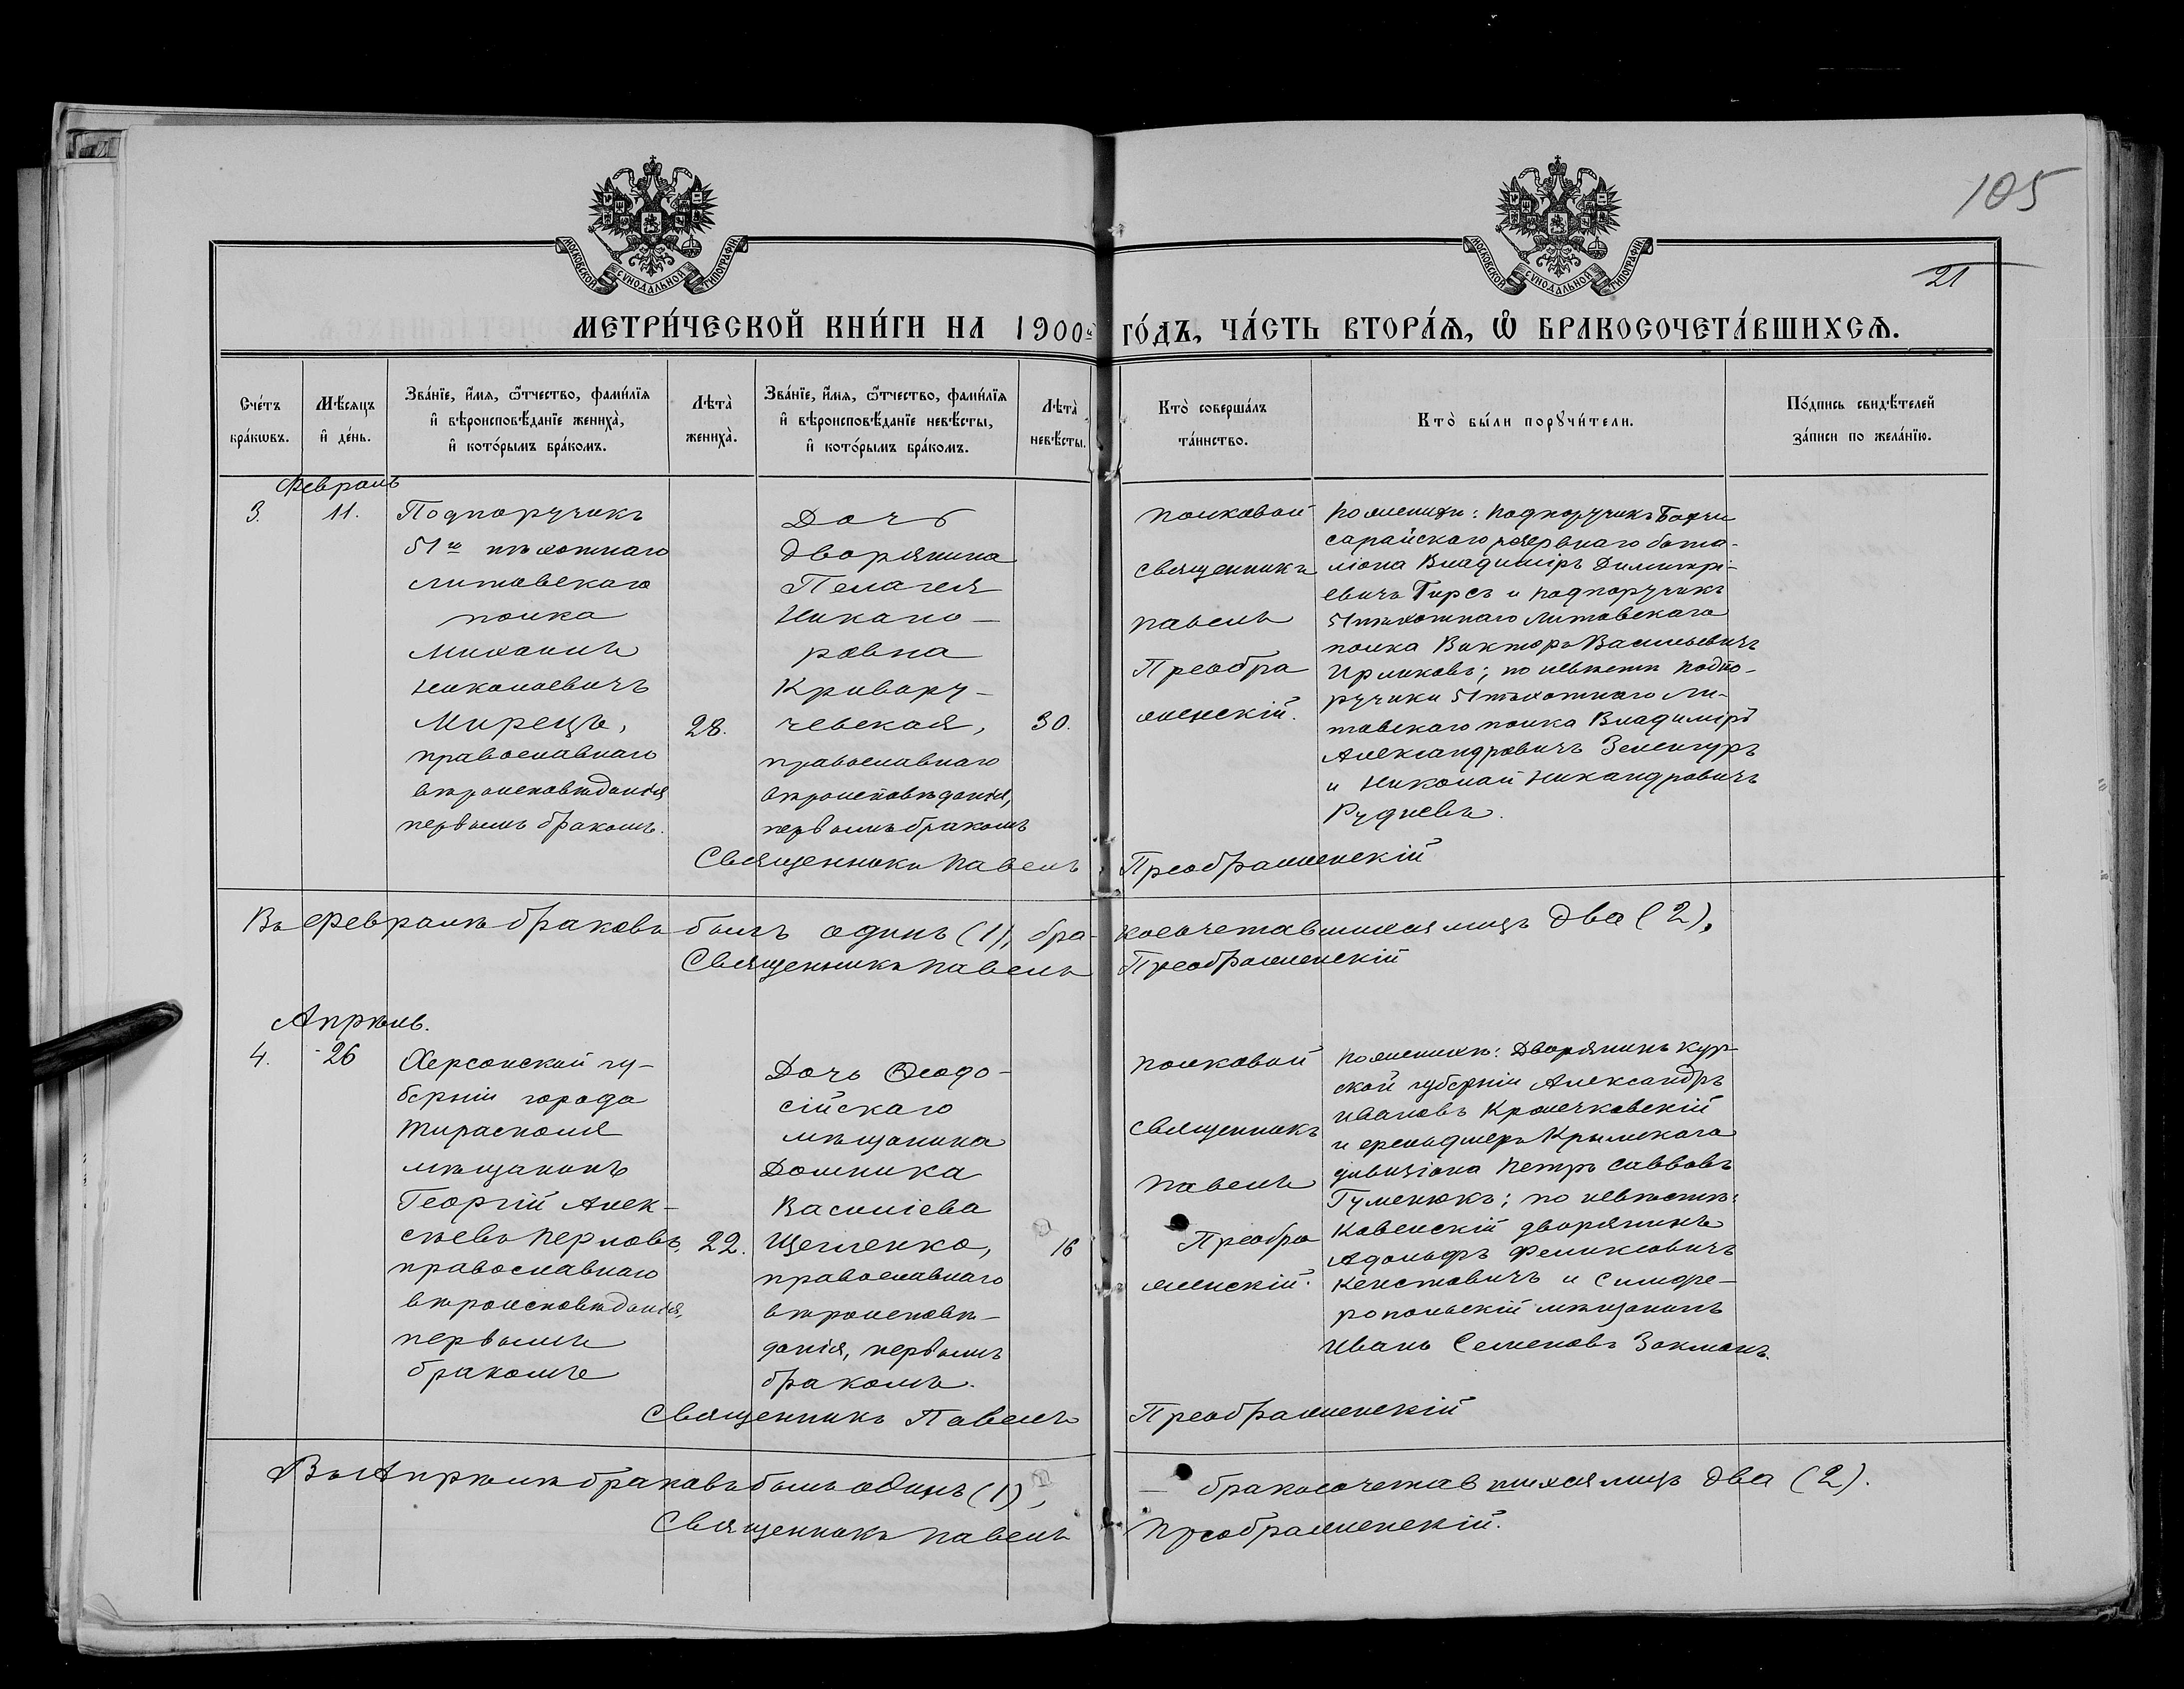 105
21
МОСКОВСКОЙ СѴНОДАЛЬНОЙ ТИПОГРАФІИ
МОСКОВСКОЙ СѴНОДАЛЬНОЙ ТИПОГРАФІИ
МЕТРИ́ЧЕСКОЙ КНИ́ГИ НА 1900й ГО́ДЪ, ЧА́СТЬ ВТОРА́Ѧ, Ѽ БРАКОСОЧЕТА́ВШИХСѦ.
Сче́тъ
бра́кѡвъ.
Мѣ́сяцъ
и҆ де́нь.
Зва́нїе, и҆́мя, ѻ҆́тчество, фами́лїя
и҆ вѣроисповѣ́данїе жениха̀,
и҆ кото́рымъ бра́комъ.
Лѣта̀
жениха̀.
Зва́нїе, и҆́мя, ѻ҆́тчество, фами́лїя
и҆ вѣроисповѣ́данїе невѣ́сты,
и҆ кото́рымъ бра́комъ.
Лѣта̀
невѣ́сты.
Кто̀ соверша́лъ
та́инство.
Кто̀ бы́ли порꙋчи́тели.
По́дпись свидѣ́телей
за́писи по жела́нїю.
Февраль
3.
11.
Подпоручикъ
51го пѣхотнаго
Литовскаго
полка
Михаилъ
Николаевичъ
Мирецъ,
православнаго
вѣроисповѣданія
первымъ бракомъ.
28.
Дочь
дворянина
Пелагея
Никано-
ровна
Кривору-
чевская,
православнаго
вѣроисповѣданія,
первымъ бракомъ
30.
Полковой
Священникъ
Павелъ
Преобра
женскій.
По женихѣ: Подпоручикъ Бахчи
сарайскаго резервнаго бата-
ліона Владиміръ Димитрі-
евичъ Гирсъ и подпоручикъ
51 пѣхотнаго Литовскаго
полка Викторъ Васильевичъ
Ирликовъ; по невѣстѣ подпо-
ручики 51 пѣхотнаго Ли-
товскаго полка Владиміръ
Александровичъ Зеленгуръ
и Николай Никандровичъ
Рудневъ.
Священникъ Павелъ Преображенскій
Въ Февралѣ браковъ былъ одинъ (1), бра-косочетавшихся лицъ два (2).
Священникъ Павелъ Преображенскій
Апрѣль.
4.
26
Херсонской гу-
берніи города
Тирасполя
мѣщанинъ
Георгій Алек-
сѣевъ Перловъ,
православнаго
вѣроисповѣданія,
первымъ
бракомъ
22.
Дочь Ѳеодо-
сійскаго
мѣщанина
Домника
Василіева
Щегленко,
православнаго
вѣроисповѣ-
данія, первымъ
бракомъ.
16
Полковой
Священникъ
Павелъ
Преобра
женскій.
По женихѣ: Дворянинъ Кур-
ской губерніи Александръ
Ивановъ Кролечковскій
и фельдшеръ Крымскаго
дивизіона Петръ Савовъ
Гуменюкъ; по невѣстѣ:
Ковенскій дворянинъ
Адольфъ Феликсовичъ
Кенстовичъ и Симфе-
ропольскій мѣщанинъ
Иванъ Семеновъ Закманъ.
Священникъ Павелъ Преображенскій
Въ Апрѣлѣ браковъ былъ одинъ (1), — бракосочетавшихся лицъ два (2).
Священникъ Павелъ Преображенскій.